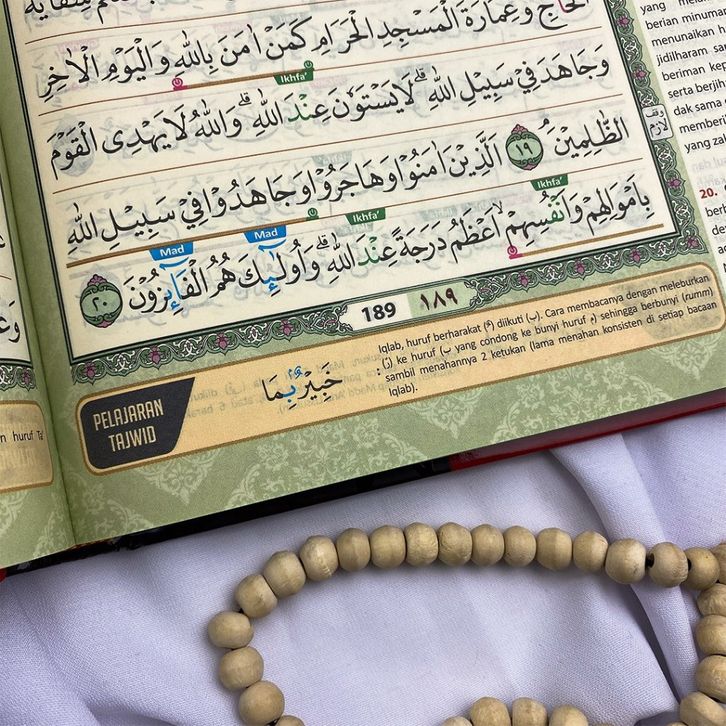 الْحَاجِّ وَعِمَارَةَ الْمَسْجِدِ الْحَرَامِ كَمَنْ اٰمَنَ بِاللّٰهِ وَالْيَوْمِ الْاٰخِرِ
Ikhfa'
وَجَاهَدَ فِيْ سَبِيْلِ اللّٰهِ ۗ لَا يَسْتَوٗنَ عِنْدَ اللّٰهِ ۗ وَاللّٰهُ لَا يَهْدِى الْقَوْمَ
الظّٰلِمِيْنَۘ ١٩ اَلَّذِيْنَ اٰمَنُوْا وَهَاجَرُوْا وَجَاهَدُوْا فِيْ سَبِيْلِ اللّٰهِ
Ikhfa'
Ikhfa'
Mad
Mad
بِاَمْوَالِهِمْ وَاَنْفُسِهِمْۙ اَعْظَمُ دَرَجَةً عِنْدَ اللّٰهِ ۗ وَاُولٰۤىِٕكَ هُمُ الْفَاۤىِٕزُوْنَ ٢٠
189 ١٨٩
PELAJARAN
TAJWID
خَبِيْرٌۢ بِمَا :
Iqlab, huruf berharakat (ٌ) diikuti (ب). Cara membacanya dengan meleburkan
(نْ) ke huruf (ب) yang condong ke bunyi huruf (م) sehingga berbunyi (rumm)
sambil menahannya 2 ketukan (lama menahan konsisten di setiap bacaan
Iqlab).
وقف
لازم
yang
berian minuman
menunaikan h
jidilharam sa
beriman kep
serta berjih
dak sama
memberi
yang zal
20.
berh
n huruf Ta'